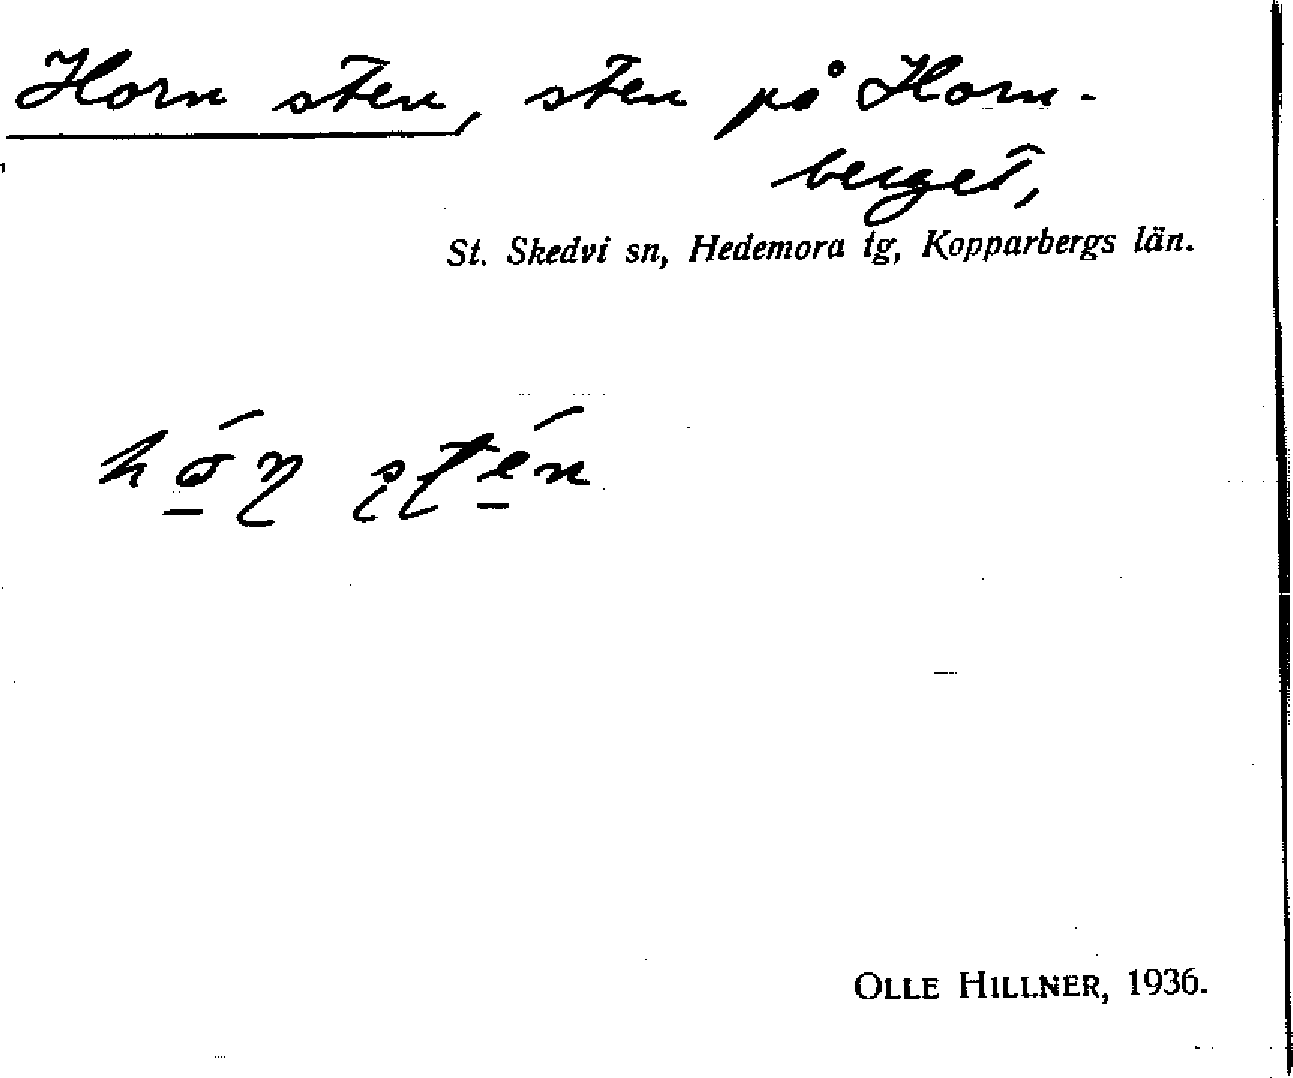 Horn sten, sten på Horn-
berget,
St. Skedvi sn, Hedemora tg, Kopparbergs län.
OLLE HILLNER, 1936.